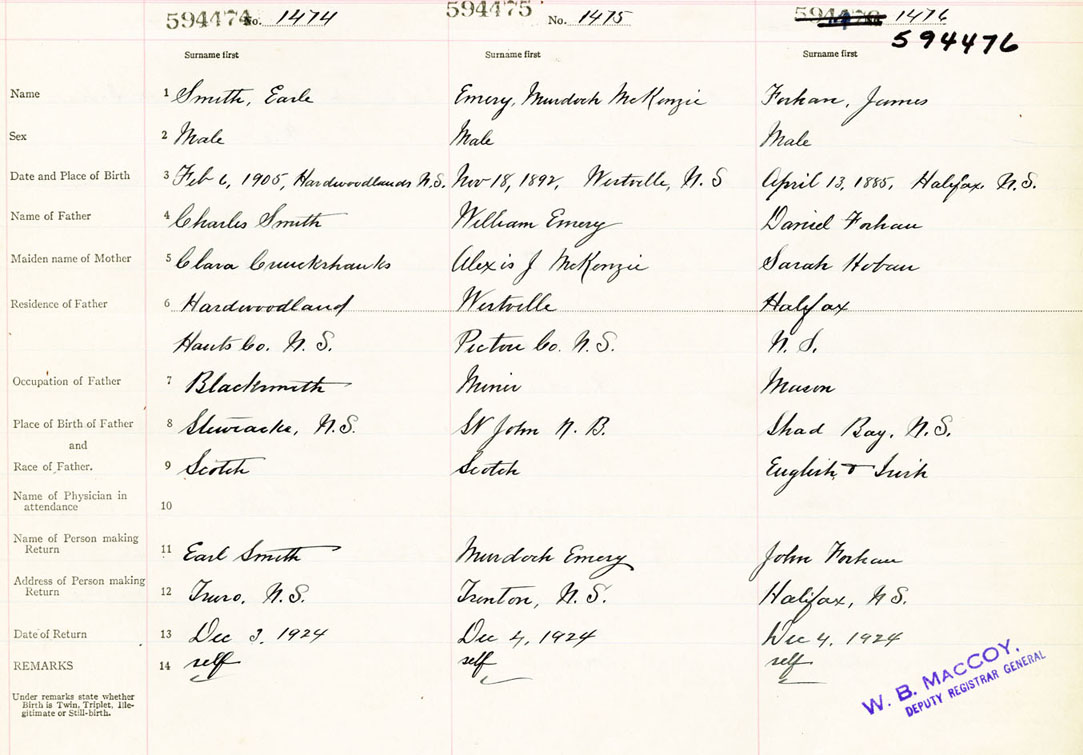 594474 No. 1474 594475 No. 1475 1476
594476
Surname first Surname first Surname first
Name 1 Smith, Earle Emery, Murdoch McKenzie Forhan, James
Sex 2 Male Male Male
Date and Place of Birth 3 Feb 6, 1905, Hardwoodlands N.S. Nov 18, 1892, Westville, N.S April 13, 1885, Halifax, N.S.
Name of Father 4 Charles Smith William Emery Daniel Forhan
Maiden name of Mother 5 Clara Cruickshanks Alexis J McKenzie Sarah Hoban
Residence of Father 6 Hardwoodland Westville Halifax
Hants Co. N.S. Pictou Co. N.S. N.S.
Occupation of Father 7 Blacksmith Miner Mason
Place of Birth of Father 8 Stewiacke, N.S. St John N.B. Shad Bay, N.S.
and
Race of Father. 9 Scotch Scotch English & Irish
Name of Physician in
attendance 10
Name of Person making
Return 11 Earl Smith Murdoch Emery John Forhan
Address of Person making
Return 12 Truro, N.S. Trenton, N.S. Halifax, N.S.
Date of Return 13 Dec 3, 1924 Dec 4, 1924 Dec 4, 1924
REMARKS 14 self self self
Under remarks state whether
Birth is Twin, Triplet, Ille-
gitimate or Still-birth.
W. B. MACCOY,
DEPUTY REGISTRAR GENERAL